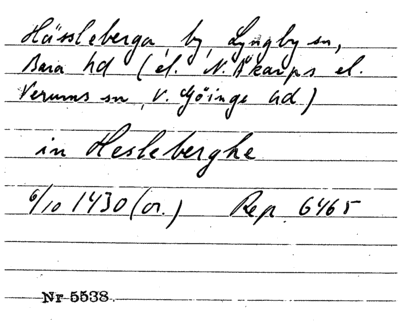 Hässleberga, by, Lyngby sn,
Bara hd (el. N. Åkarps el.
Verums sn, V. Göinge hd)
in Hesleberghe
6/10 1430 (or.) Rep. 6465
Nr 5538